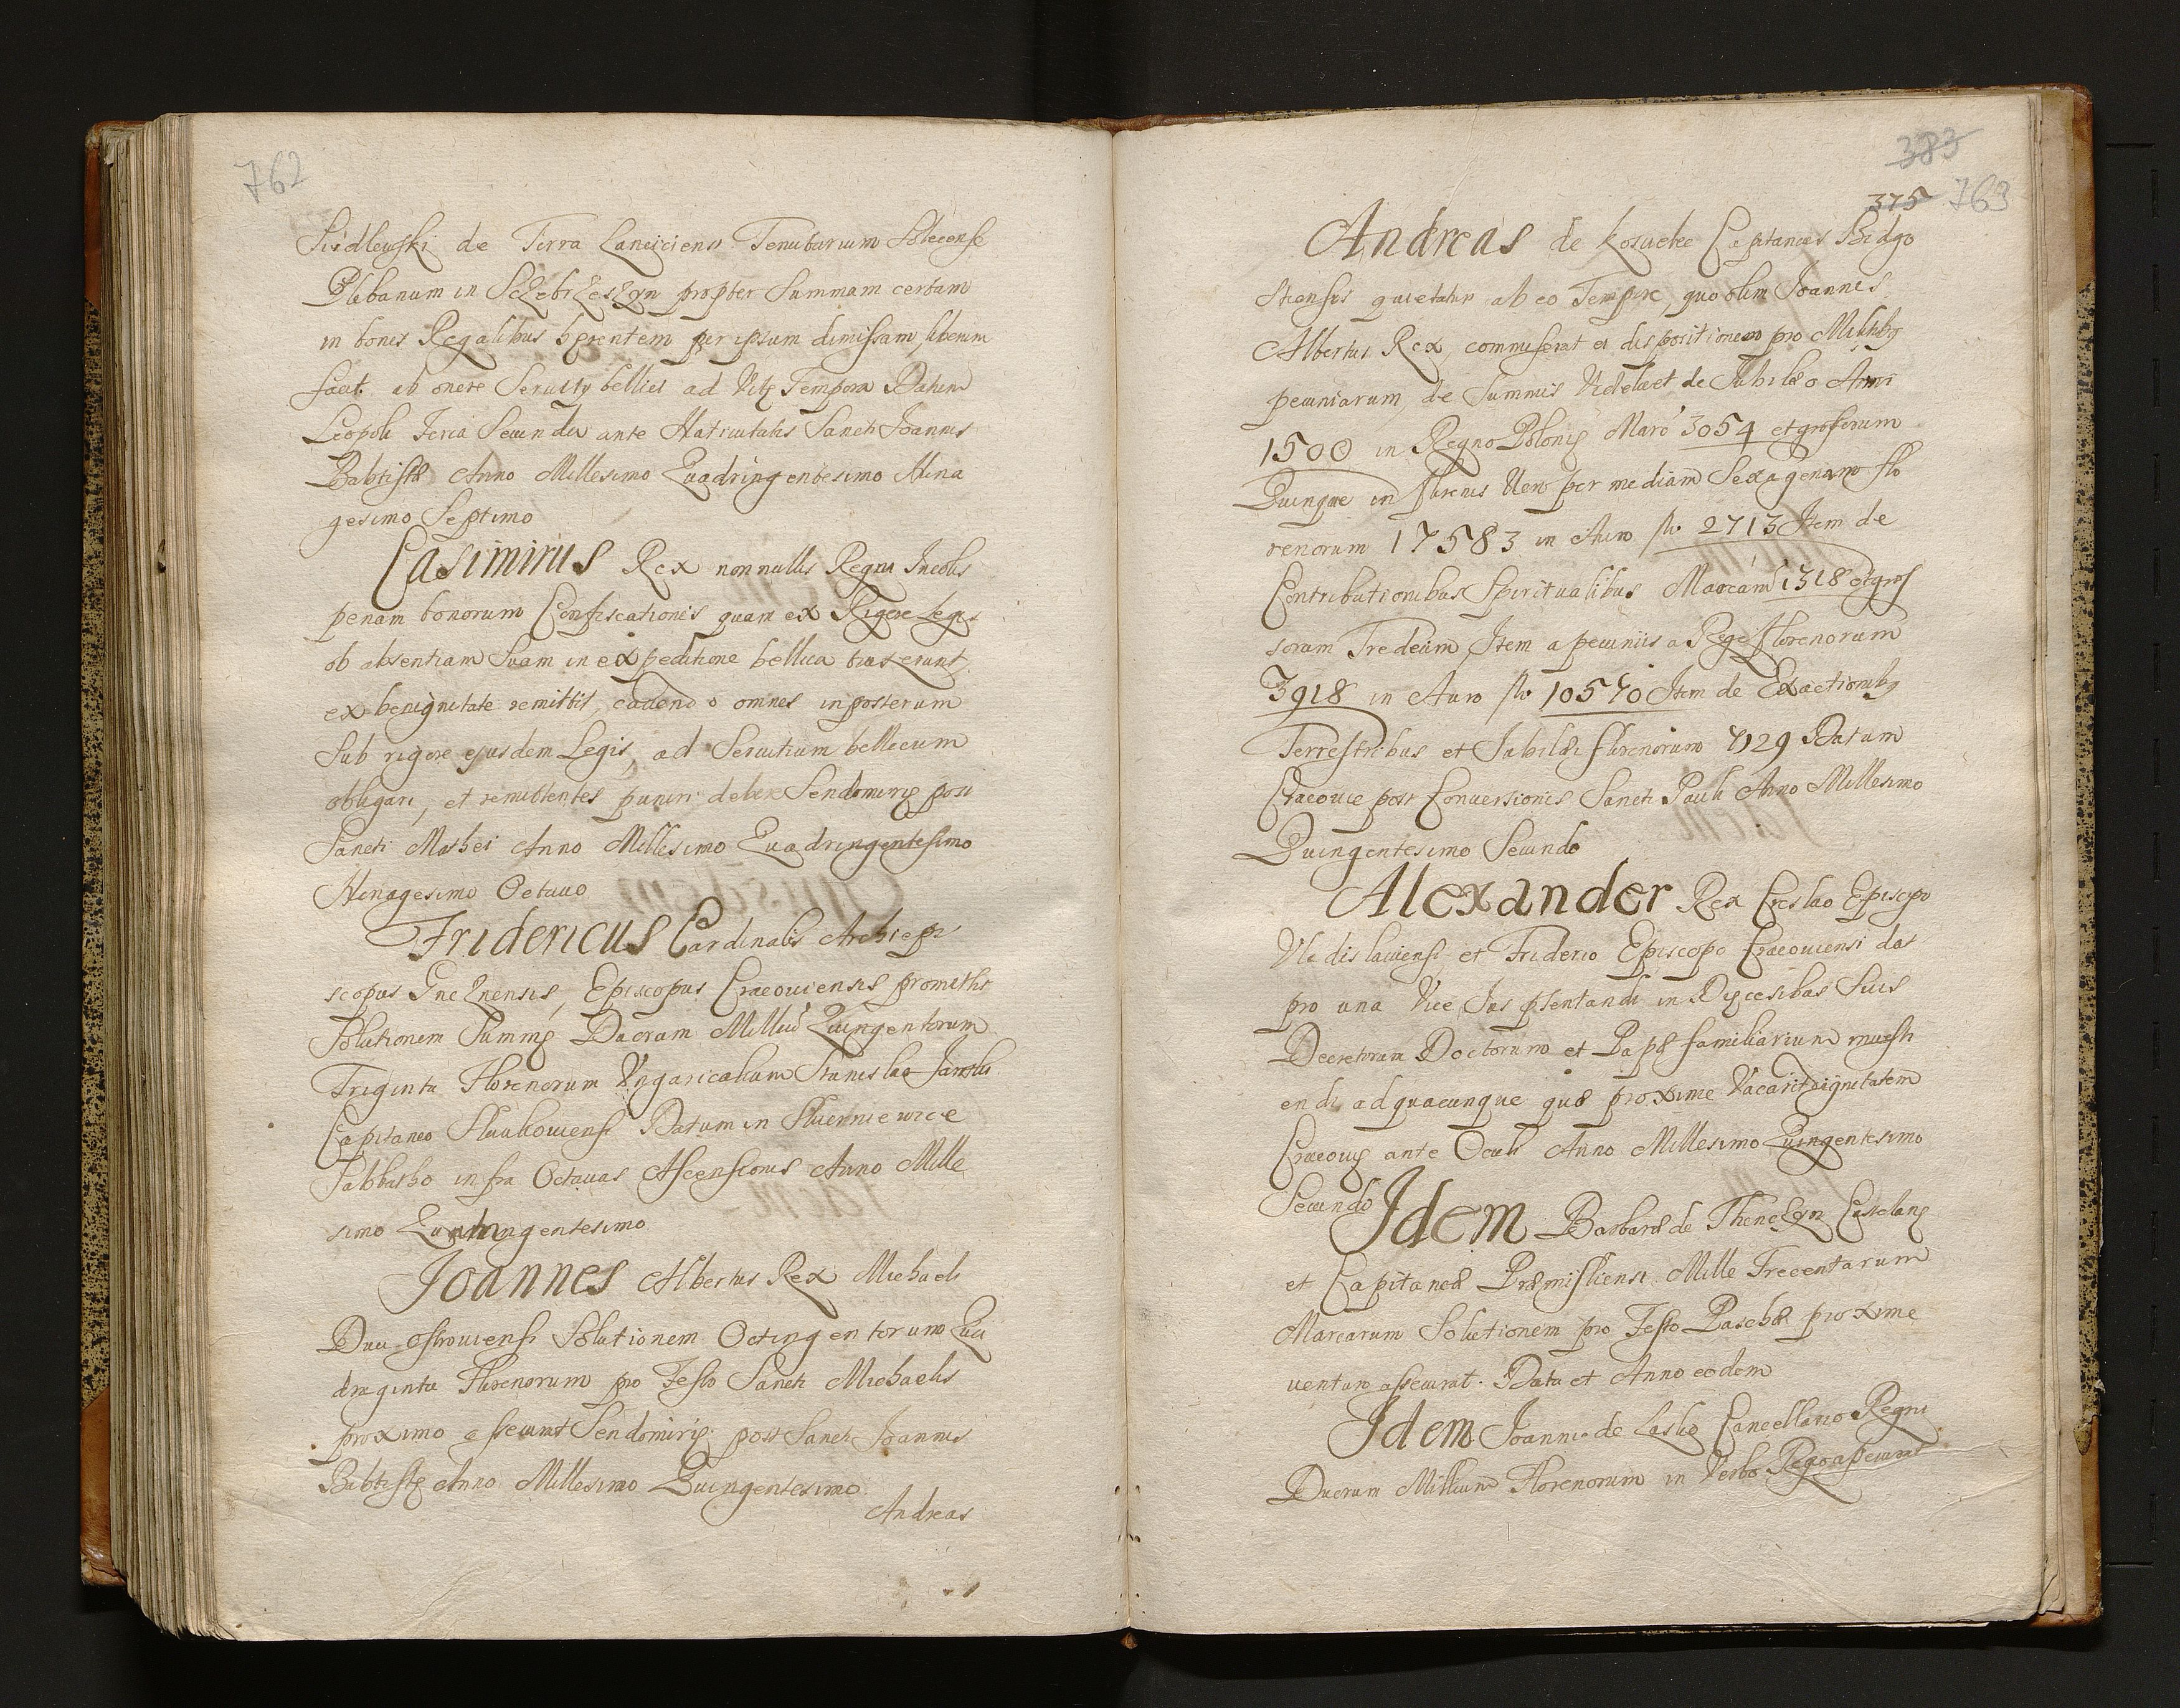 762
Siedlewski de Terra Lanciciens. Tenutarium Solecense
Plebanum in Sczebrzeszyn propter Summam certam
in bonis Regalibus hẹrentem per ipsum dimissam, liberum
facit ab onere Seruity bellici ad Vitę Tempora Datum
Leopoli Feria Secunda ante Natiuitatis Sancti Joannis
Babtistæ Anno Millesimo Quadringentesimo Nina
gesimo Septimo
Casimirus Rex nonnullis Regni Incolis
penam bonorum Confiscationis quam ex Rigore Legis
ob absentiam Suam in expeditione bellica
ex benignitate remittit, omnes in posterum
Sub rigore ejusdem Legis, ad Seruitium bellicum
obligari, et remittentes puniri debere Sendomirię post
Sancti Mathei Anno Millesimo Quadringentesimo
Ninagesimo Octauo
Fridericus Cardinalis Archiepi
scopus Gneznensis, Episcopus Cracouiensis promittit
Solutionem Summę Duorum Milliū Quingentorum
Triginta Florenorum Vngaricalium Stanislao Jarosky
Capitaneo Datum in Skierniewice
Sabbatho infra Octauas Ascensionis Anno Mille
simo Quingentesimo
Joannes Albertus Rex Michaeli
Solutionem Octingentorum Qua
draginta Florenorum pro Festo Sancti Michaelis
proximo assecurat Sendomirię post Sancti Joannis
Babtistę Anno Millesimo Quingentesimo
Andreas
383
375 763
Andreas de Koscielec Capitaneus Bidgo
stiensis quietatur ab eo Tempore, quo olim Joannes
Albertus Rex, commiserat ei dispositionem pro Militibg
pecuniarum, de Summis Videlicet de Jubileo Anni
1500 in Regno Polonię Marc 3054 et grossorum
Quinque in florenis Vero per mediam Sexagenam flo
renorum 17583 in Auro flo. 2713 Item de
Contributionibus Spiritualibus Marcarū 1318 et gros
sorum Tredecim Item a pecuniis a Rege florenorum
3918 in Auro flo. 10570 Item de Exactionibg
Terrestribus et Jubilæi florenorum 7129 Datum
Cracouie post Conuersionis Sancti Pauli Anno Millesimo
Quingentesimo Secundo
Alexander Rex Creslao Episcopo
Vladislauiensi et Friderico Episcopo Cracouiensi dat
pro una Vice Jus pſentandi in Diẹcesibus Suis
Decretorum Doctorum et Papæ familiarium inuesti
endi ad quacunque quæ proxime Vacarit dignitatem
Cracouię ante Oculi Anno Millesimo Quingentesimo
Secundo
Idem Barbaræ de Thenczyn Castelanę
et Capitaneæ Præmisliensi Mille Trecentarum
Marcarum Solutionem pro Festo Paschæ proxime
venturo assecurat. Data et Anno eodem
Idem Joanni de Lasko Cancellario Regni
Duorum Millium Florenorum in Verbo Regio assecurat